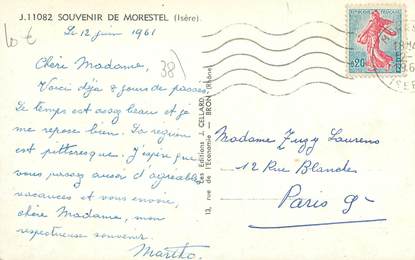 J.11082 SOUVENIR DE MORESTEL (Isère).
10 €
Le 12 juin 1961
38)
Chère Madame,
Voici déjà 8 jours de passés.
Le temps est assez beau et je
me repose bien. La région
est pittoresque. J'espère que
vous passez aussi d'agréables
vacances et vous envoie,
chère Madame, mon
respectueux souvenir.
Martho.
Les Editions CELLARD
13, rue de l'Economie - BRON (Rhône)
0,20
Madame Zuzy Laurens
12 Rue Blanche
Paris 9e